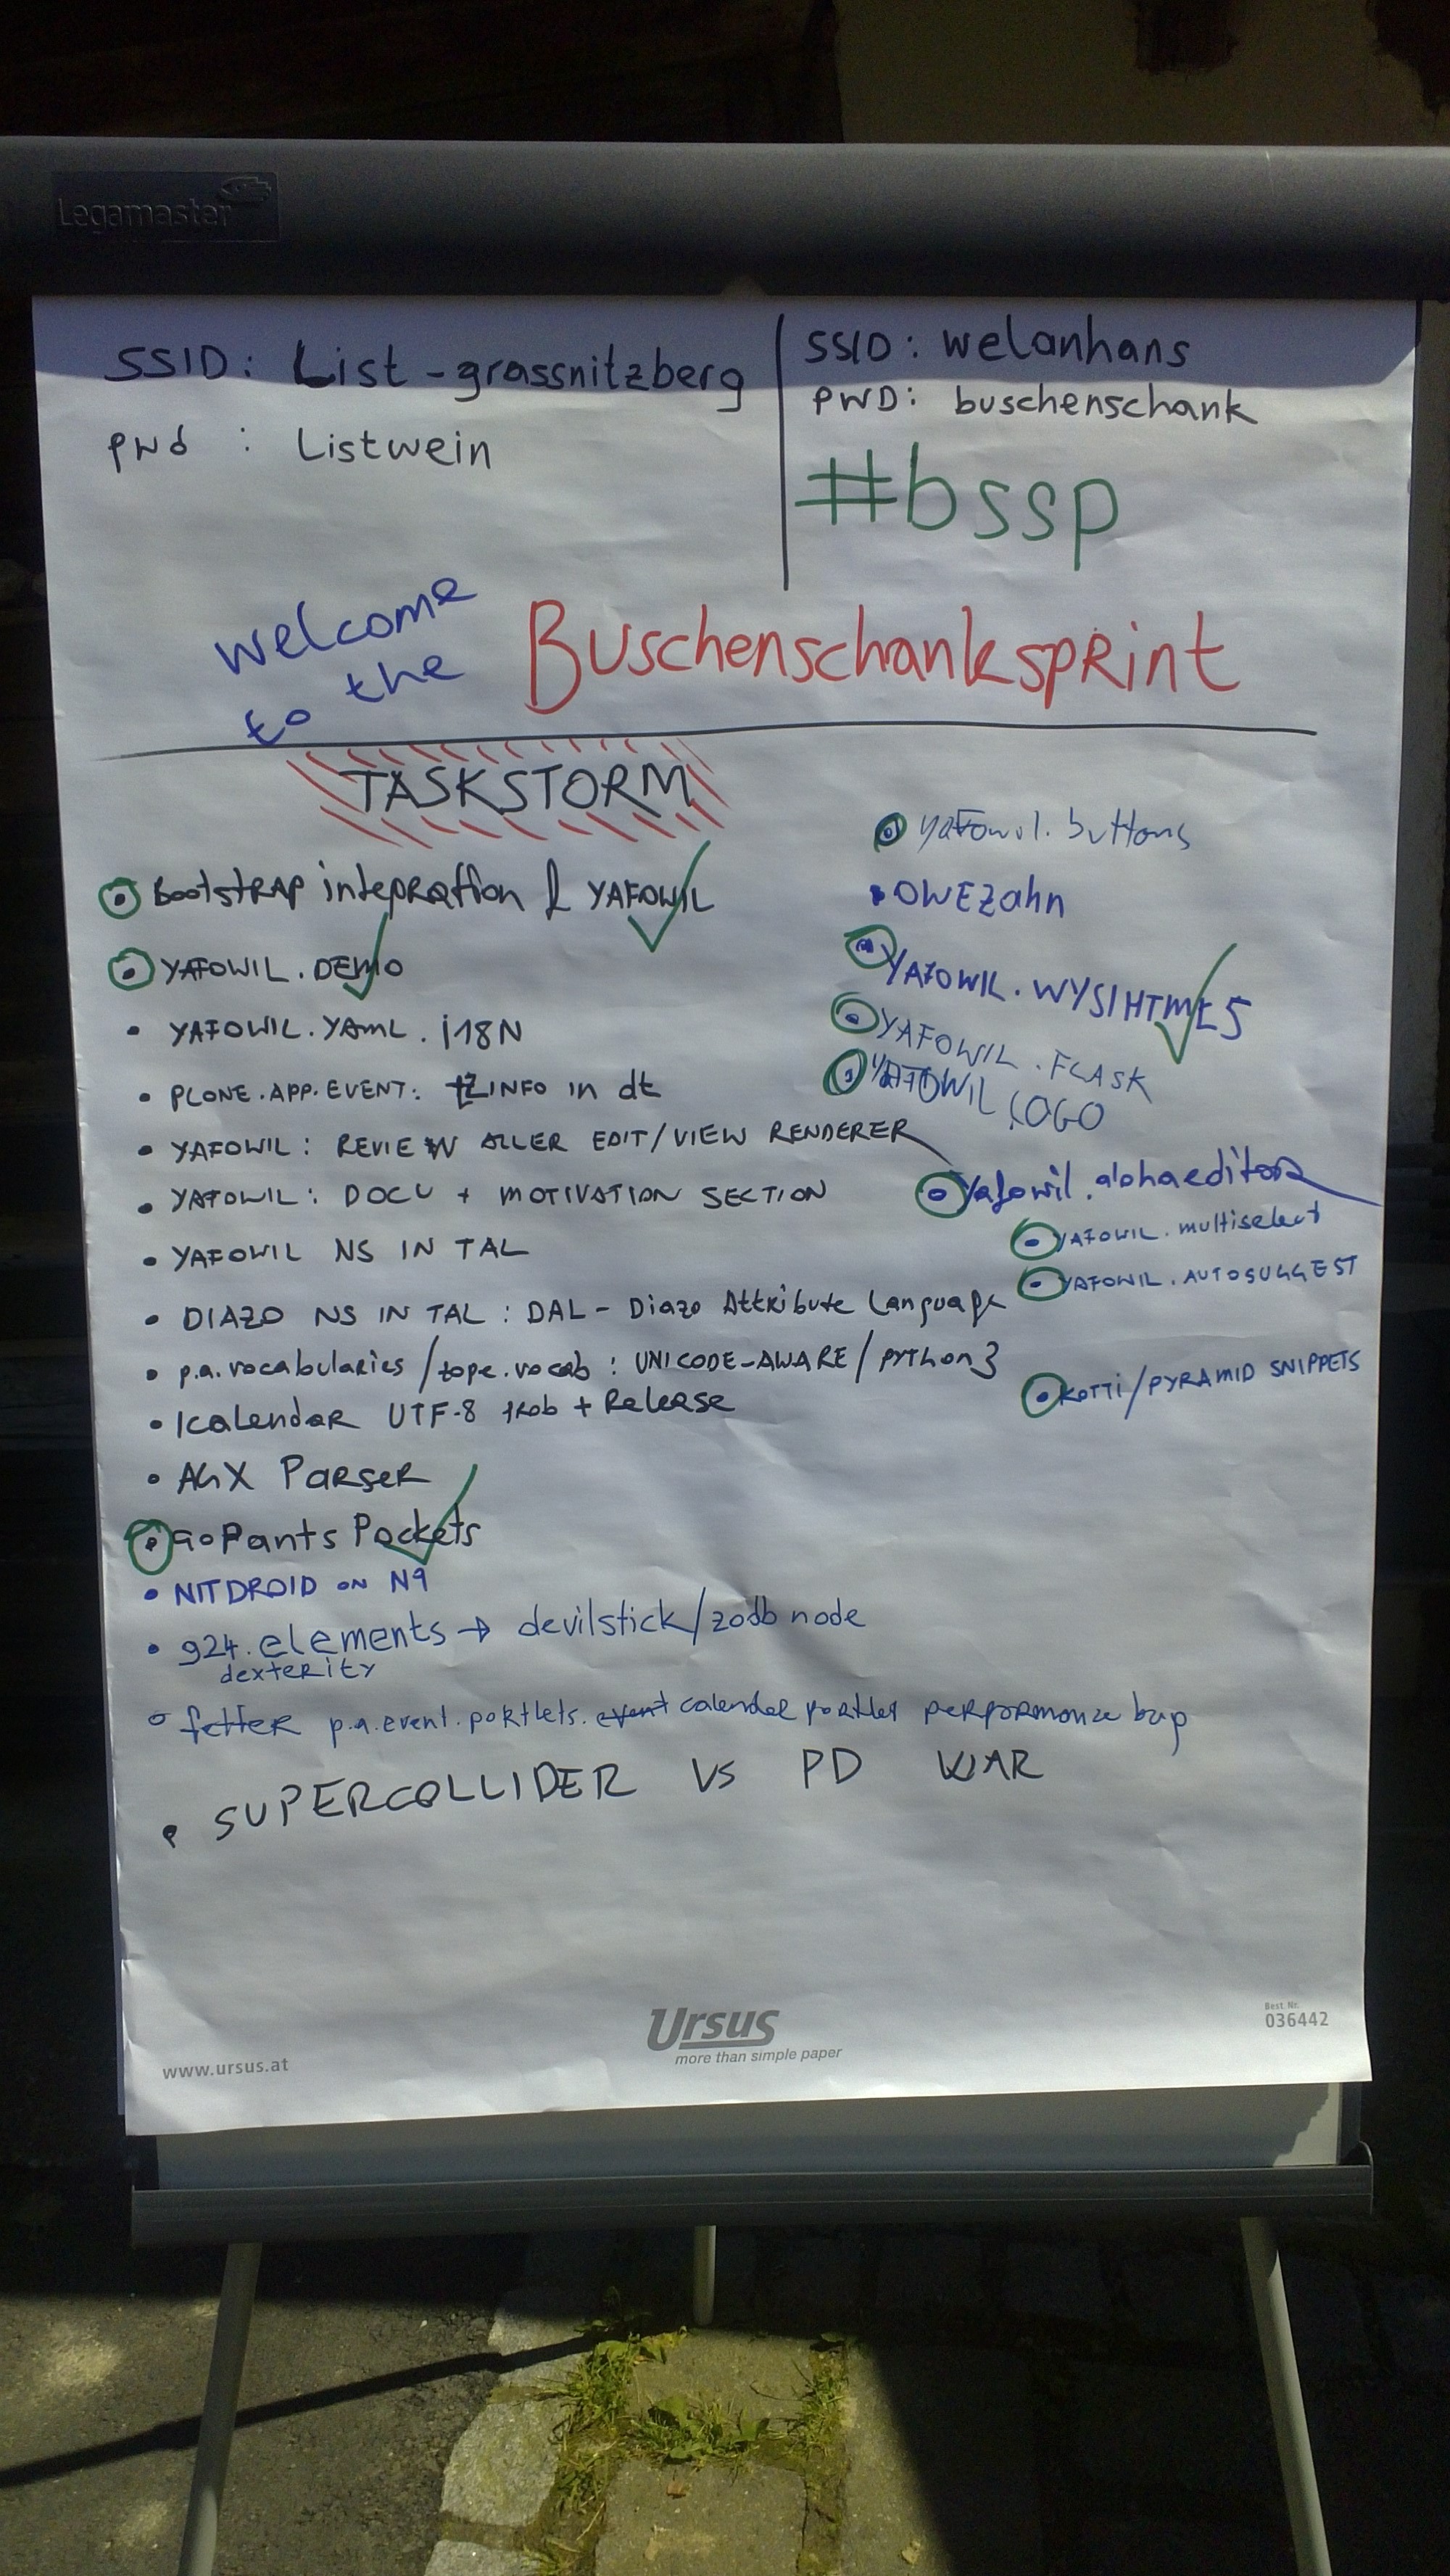 Legamaster
SSID: List-grassnitzberg
pwd : Listwein
SSID: welanhans
PWD: buschenschank
#bssp
welcome
to the
Buschenschanksprint
TASKSTORM
• Bootstrap integration f YAFOWIL
• YAFOWIL.DEMO
• YAFOWIL.YAML.i18N
• PLONE.APP.EVENT: tZINFO in dt
• YAFOWIL: REVIEW ALLER EDIT/VIEW RENDERER
• YAFOWIL: DOCU + MOTIVATION SECTION
• YAFOWIL NS IN TAL
• DIAZO NS IN TAL: DAL - Diazo Attribute Language
• p.a.vocabularies/zope.vocab: UNICODE-AWARE/python3
• Icalendar UTF-8 + Release
• AGX Parser
• GoPants Pockets
• NITDROID ON N9
• g24.elements → devilstick/zodb node
dexterity
• fetter p.a.event.portlets. event calendar portlet performance bug
• SUPERCOLLIDER VS PD WAR
• yafowil.buttons
• OWEzahn
• YAFOWIL.WYSIHTML5
• YAFOWIL.FLASK
• YAFOWIL LOGO
• yafowil.alohaeditor
• YAFOWIL.multiselect
• YAFOWIL.AUTOSUGGEST
• KOTTI/PYRAMID SNIPPETS
Ursus
more than simple paper
www.ursus.at
Best. Nr.
036442